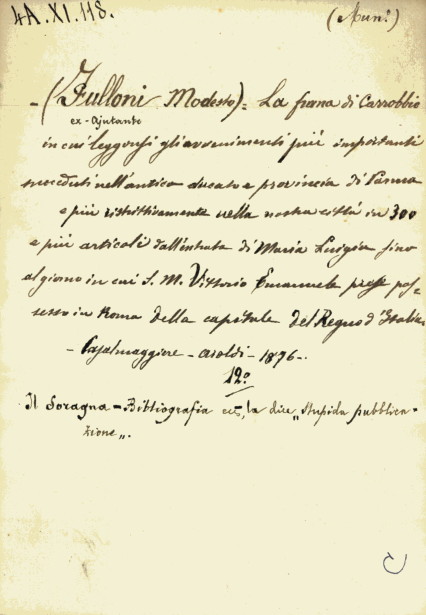 4A.XI.118.
(Mun.º)
-(Fulloni Modesto)= La frana di Carrobbio
ex-ajutante
in cui leggonsi gli avvenimenti più importanti
succeduti nell'antico ducato e provincia di Parma
e più ristrittivamente nella nostra città in 300
e più articoli dall'entrata di Maria Luigia sino
al giorno in cui S. M. Vittorio Emanuele prese pos=
sesso in Roma della capitale del Regno d'Italia
- Casalmaggiore - Aroldi - 1876 -.
12º
Il Soragna = Bibliografia ec, la dice „Stupida pubblica=
zione„.